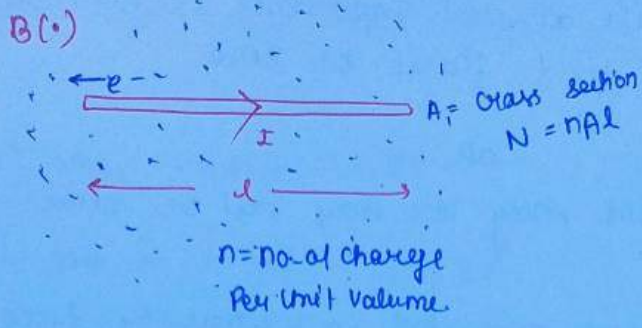 B(·)
e
A, = Crass section
N = nAl
I
l
n=no-of charge
Per Unit Valume.